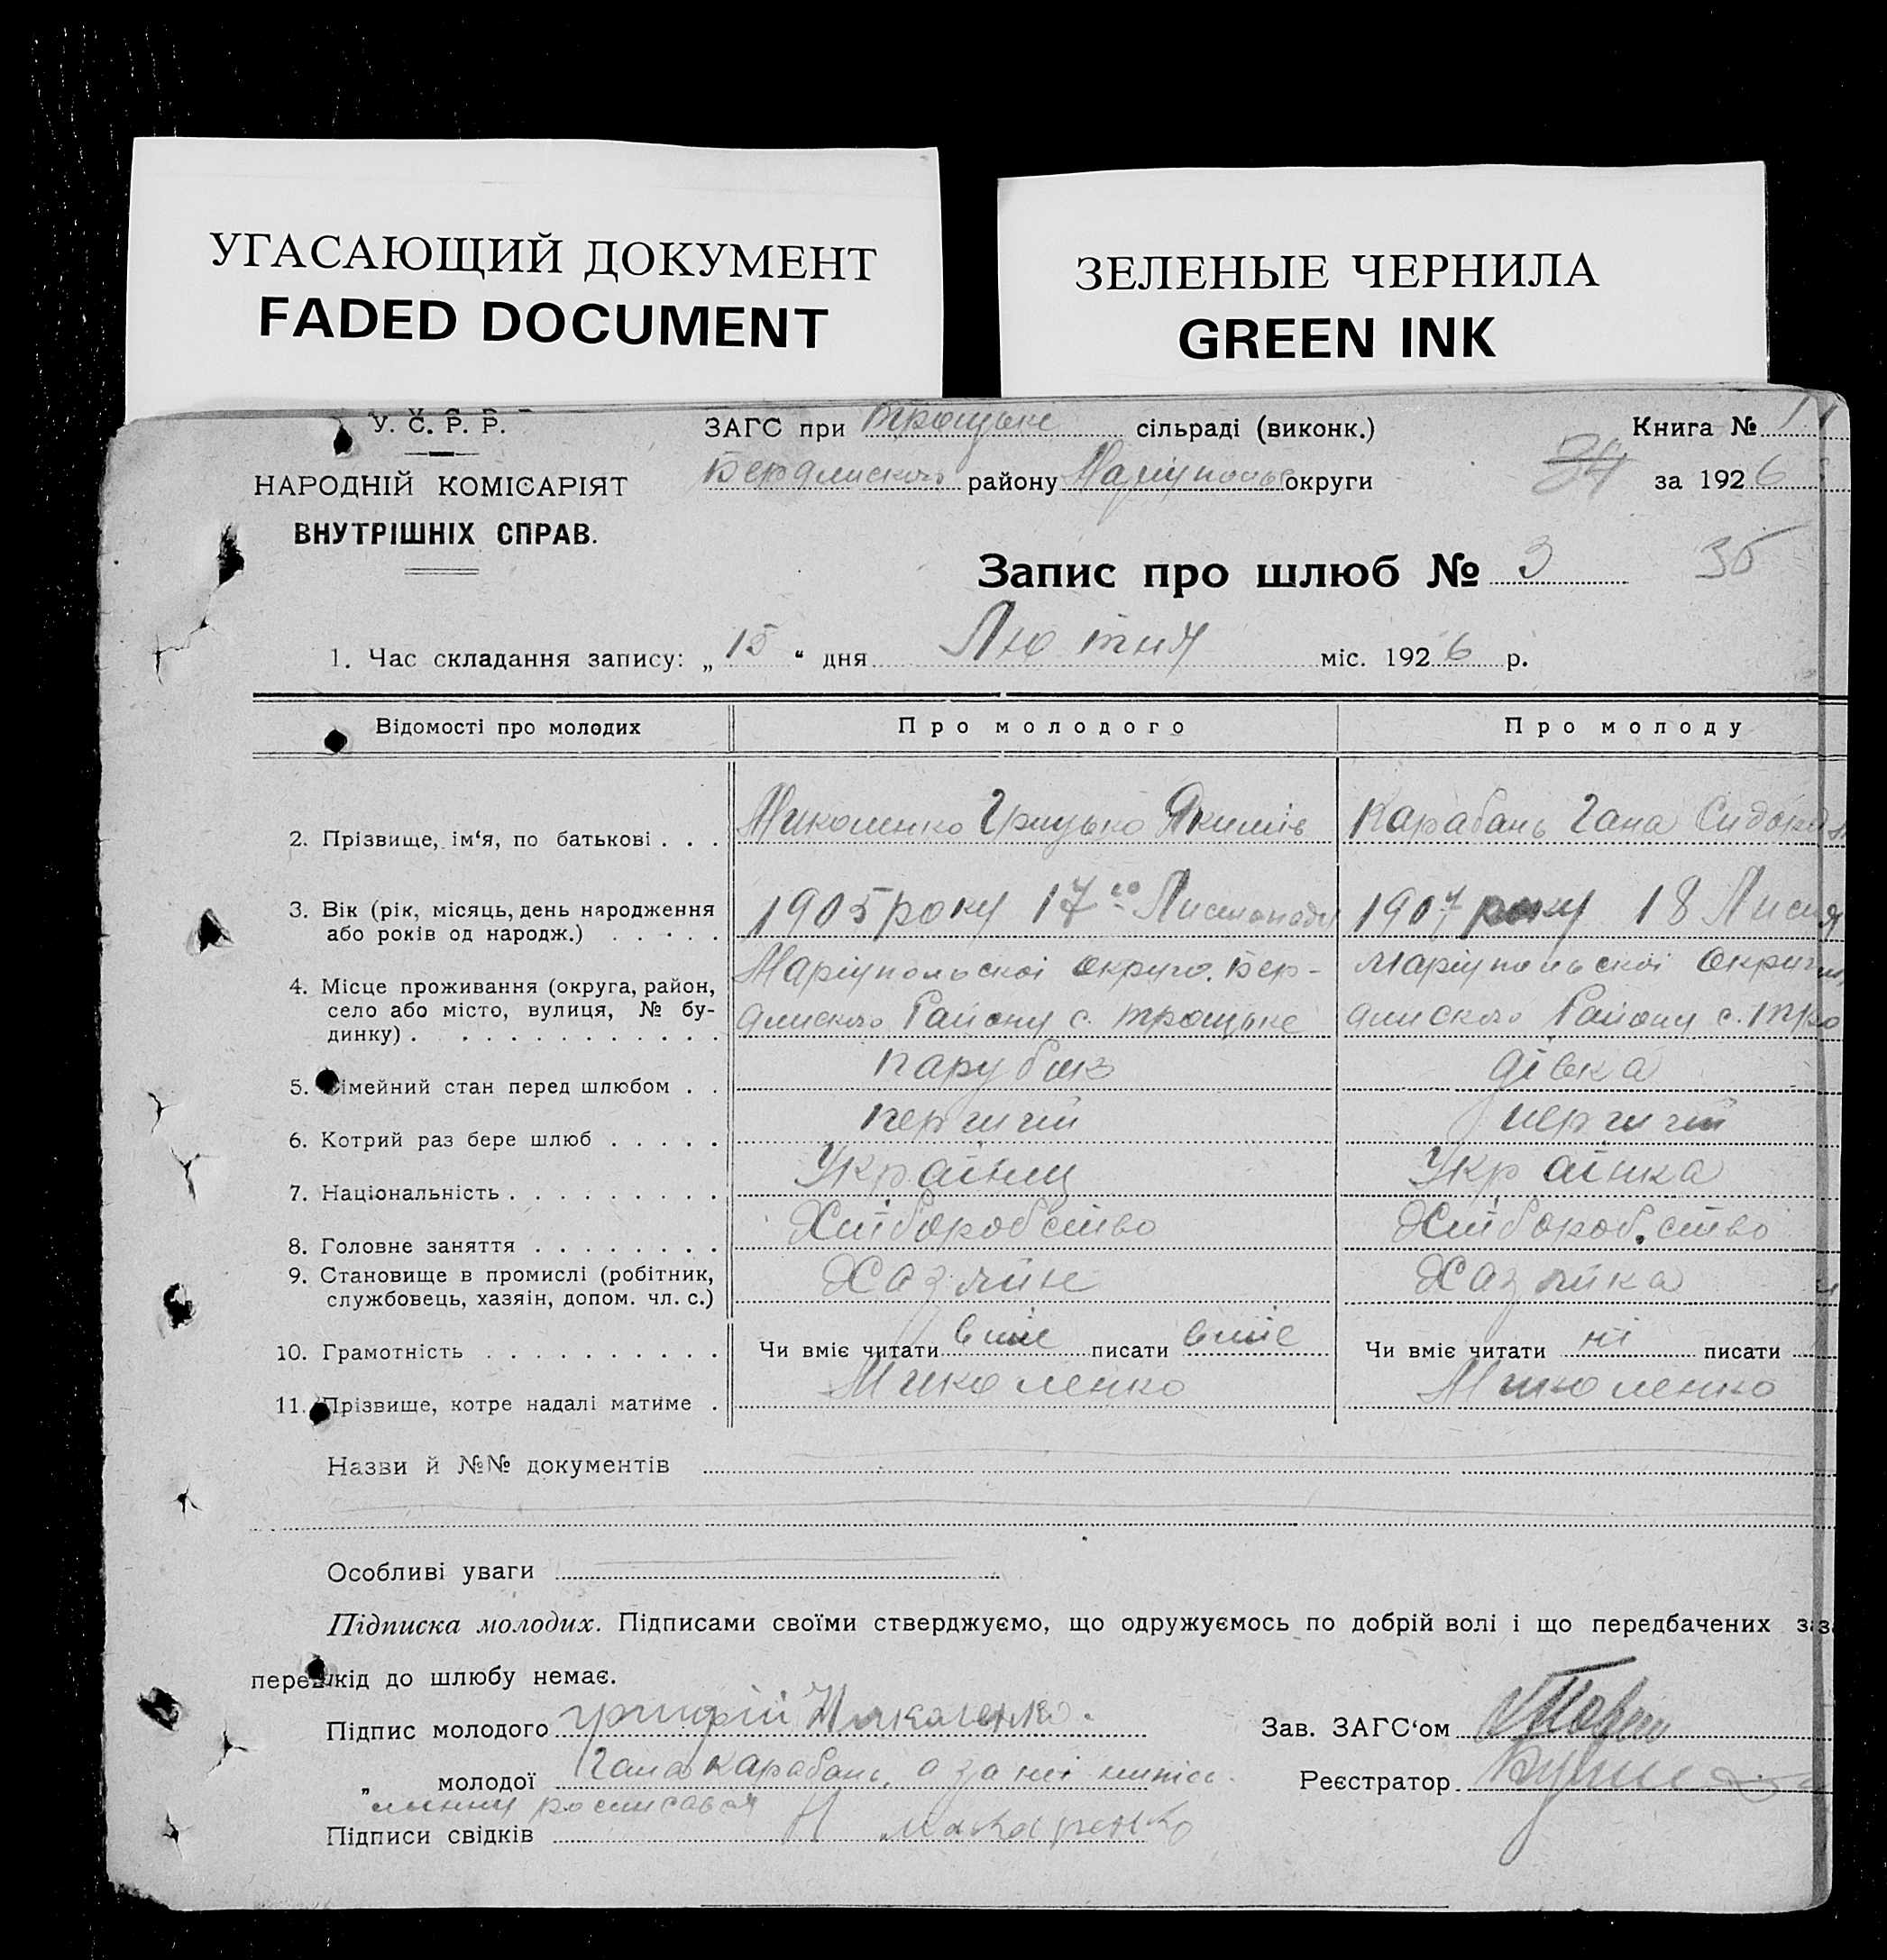 УГАСАЮЩИЙ ДОКУМЕНТ
FADED DOCUMENT
ЗЕЛЕНЫЕ ЧЕРНИЛА
GREEN INK
У. С. Р. Р.
НАРОДНІЙ КОМІСАРІЯТ
ВНУТРІШНІХ СПРАВ.
ЗАГС при Троцьке сільраді (виконк.)
Бердянского району Маріуполь округи
Книга №
34 за 1926
Запис про шлюб № 3 35
1. Час складання запису: „15“ дня Лютня міс. 1926 р.
Відомості про молодих Про молодого Про молоду
2. Прізвище, ім‘я, по батькові . . . Миколенко Грицько Якимів Карабань Гана Сидор
3. Вік (рік, місяць, день народження
або років од народж.) . . . . . 1905 року 17го Листопаду 1907 року 18 Лист
4. Місце проживання (округа, район,
село або місто, вулиця, № бу-
динку) . . . . . . . . . . . .
Маріупольскоі округо. Бер-
дянского Району с. Троцьке
Маріупольскоі Округи
дянского Району с. Тро
5. Сімейний стан перед шлюбом . . парубок дівка
6. Котрий раз бере шлюб . . . . . перший перший
7. Національність . . . . . . . . . Украінец Украінка
8. Головне заняття . . . . . . . . Хліборобство Хліборобство
9. Становище в промислі (робітник,
службовець, хазяін, допом. чл. с.) Хазяін Хазяйка
10. Грамотність . . . . . . . . . . Чи вміє читати вміє писати вміє Чи вміє читати ні писати
11. Прізвище, котре надалі матиме . Миколенко Миколенко
Назви й №№ документів
Особливі уваги
Підписка молодих. Підписами своїми стверджуємо, що одружуємось по добрій волі і що передбачених за
перешкід до шлюбу немає.
Підпис молодого Миколенко.
Зав. ЗАГС‘ом
„ молодої Гана Карабань, а за неі
росписався
Реєстратор
Підписи свідків Макаренко